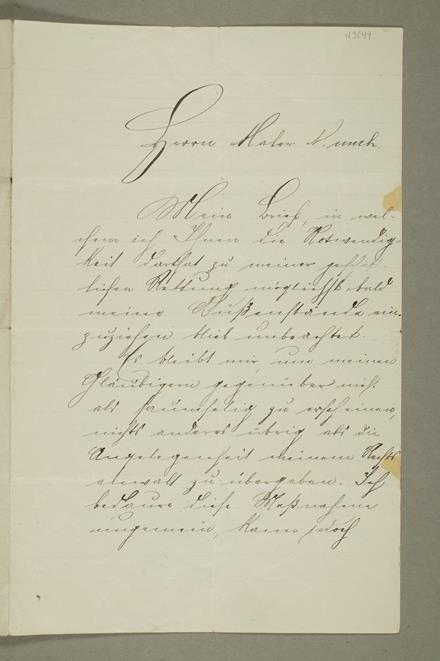 N3649
Herrn Maler Munch.
Mein Brief, in wel-
chem ich Ihnen die Notwendig-
keit darthat zu meiner
lichen Rettung möglichst bald
meine Außenstände ein-
zuziehen blieb unbeachtet.
Es bleibt mir, um meinen
Gläubigern gegenüber nicht
als saumselig zu erscheinen,
nichts anderes übrig als die
Angelegenheit meinem Rechts
anwalt zu übergeben. Ich
bedaure diese Maßnahme
ungemein, kann jedoch